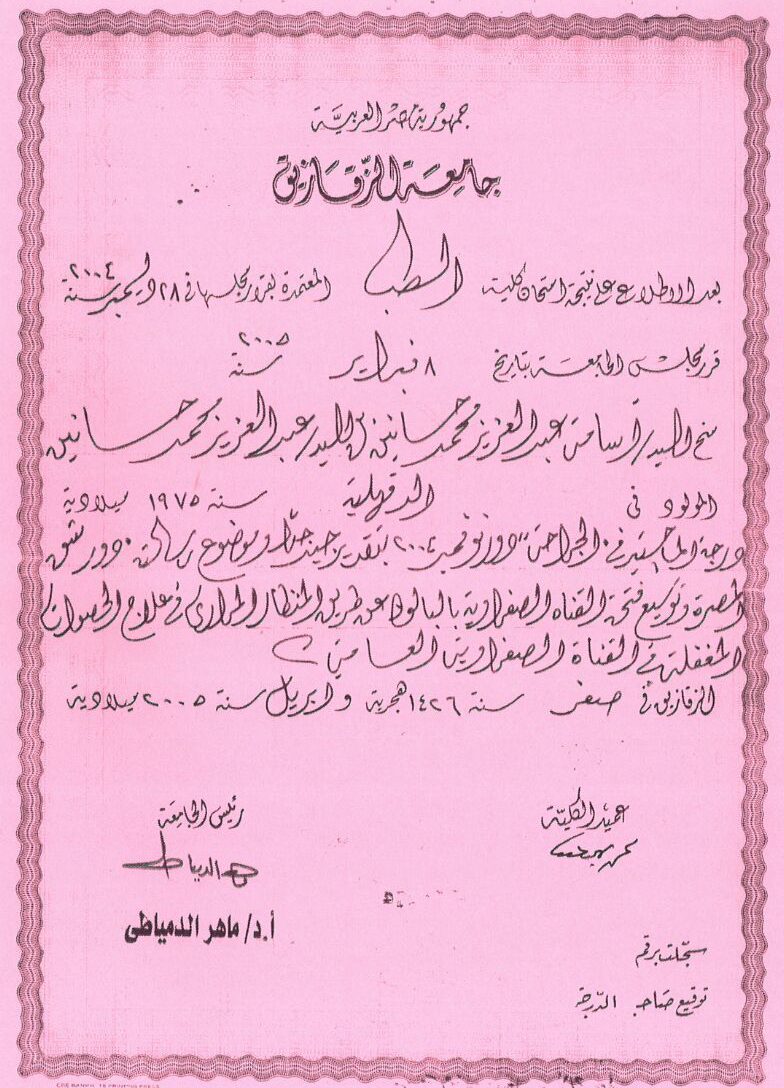 جمهورية مصر العربية
جامعة الزقازيق
بعد الاطلاع على نتيجة امتحان كلية الطب المعتمدة بقرار مجلسها في ٢٨ ديسمبر سنة ٢٠٠٤
قرر مجلس الجامعة بتاريخ ٨ فبراير سنة ٢٠٠٥
منح السيد/ أسامة عبد العزيز محمد حسانين ابن السيد/ عبد العزيز محمد حسانين
المولود في الدقهلية سنة ١٩٧٥ ميلادية
درجة الماجستير في "الجراحة" دور نوفمبر ٢٠٠٤ بتقدير جيد جدا وموضوع رسالته دور شق
المصرة وتوسيع فتحة القناه الصفراوية بالبالون عن طريق المنظار المرارى في علاج الحصوات
المغفلة في القناة الصفراوية العامة
الزقازيق في صفر سنة ١٤٢٦ هجرية و ابريل سنة ٢٠٠٥ ميلادية
عميد الكلية
رئيس الجامعة
أ.د/ ماهر الدمياطى
سجلت برقم
توقيع صاحب الدرجة